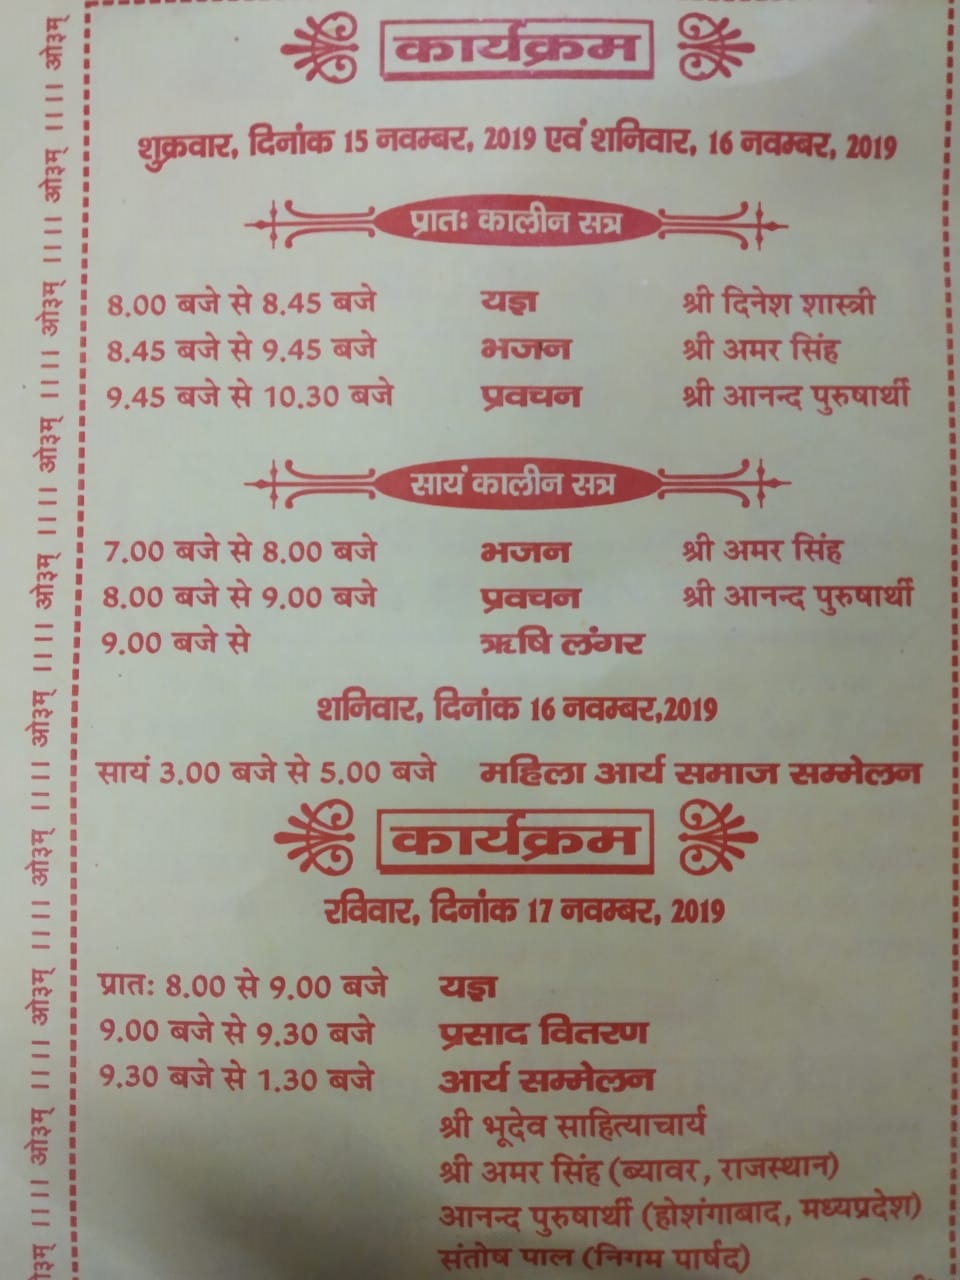 कार्यक्रम
शुक्रवार, दिनांक 15 नवम्बर, 2019 एवं शनिवार, 16 नवम्बर, 2019
प्रातः कालीन सत्र
8.00 बजे से 8.45 बजे यज्ञ श्री दिनेश शास्त्री
8.45 बजे से 9.45 बजे भजन श्री अमर सिंह
9.45 बजे से 10.30 बजे प्रवचन श्री आनन्द पुरुषार्थी
सायं कालीन सत्र
7.00 बजे से 8.00 बजे भजन श्री अमर सिंह
8.00 बजे से 9.00 बजे प्रवचन श्री आनन्द पुरुषार्थी
9.00 बजे से ऋषि लंगर
शनिवार, दिनांक 16 नवम्बर,2019
सायं 3.00 बजे से 5.00 बजे महिला आर्य समाज सम्मेलन
कार्यक्रम
रविवार, दिनांक 17 नवम्बर, 2019
प्रातः 8.00 से 9.00 बजे यज्ञ
9.00 बजे से 9.30 बजे प्रसाद वितरण
9.30 बजे से 1.30 बजे आर्य सम्मेलन
श्री भूदेव साहित्याचार्य
श्री अमर सिंह (ब्यावर, राजस्थान)
आनन्द पुरुषार्थी (होशंगाबाद, मध्यप्रदेश)
संतोष पाल (निगम पार्षद)
ओ३म् ।।।। ओ३म् ।।।। ओ३म् ।।।। ओ३म् ।।।। ओ३म् ।।।। ओ३म् ।।।। ओ३म् ।।।। ओ३म् ।।।। ओ३म् ।।।। ओ३म्